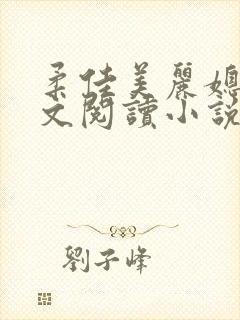 柔佳美麗媳
文閱讀小說
劉子峰